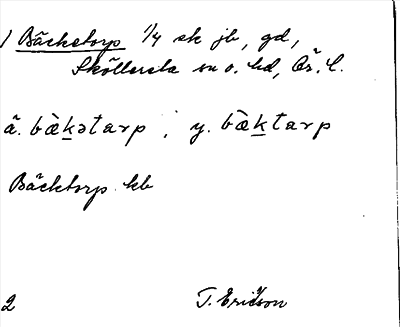 1 Bäckatorp 1/4 sk jb, gd,
Sköllersta sn o. hd, Ör. l.
ä. bæ̀kətarp ; y. bæ̀ktarp
Bäcktorp kb
2 T. Ericson